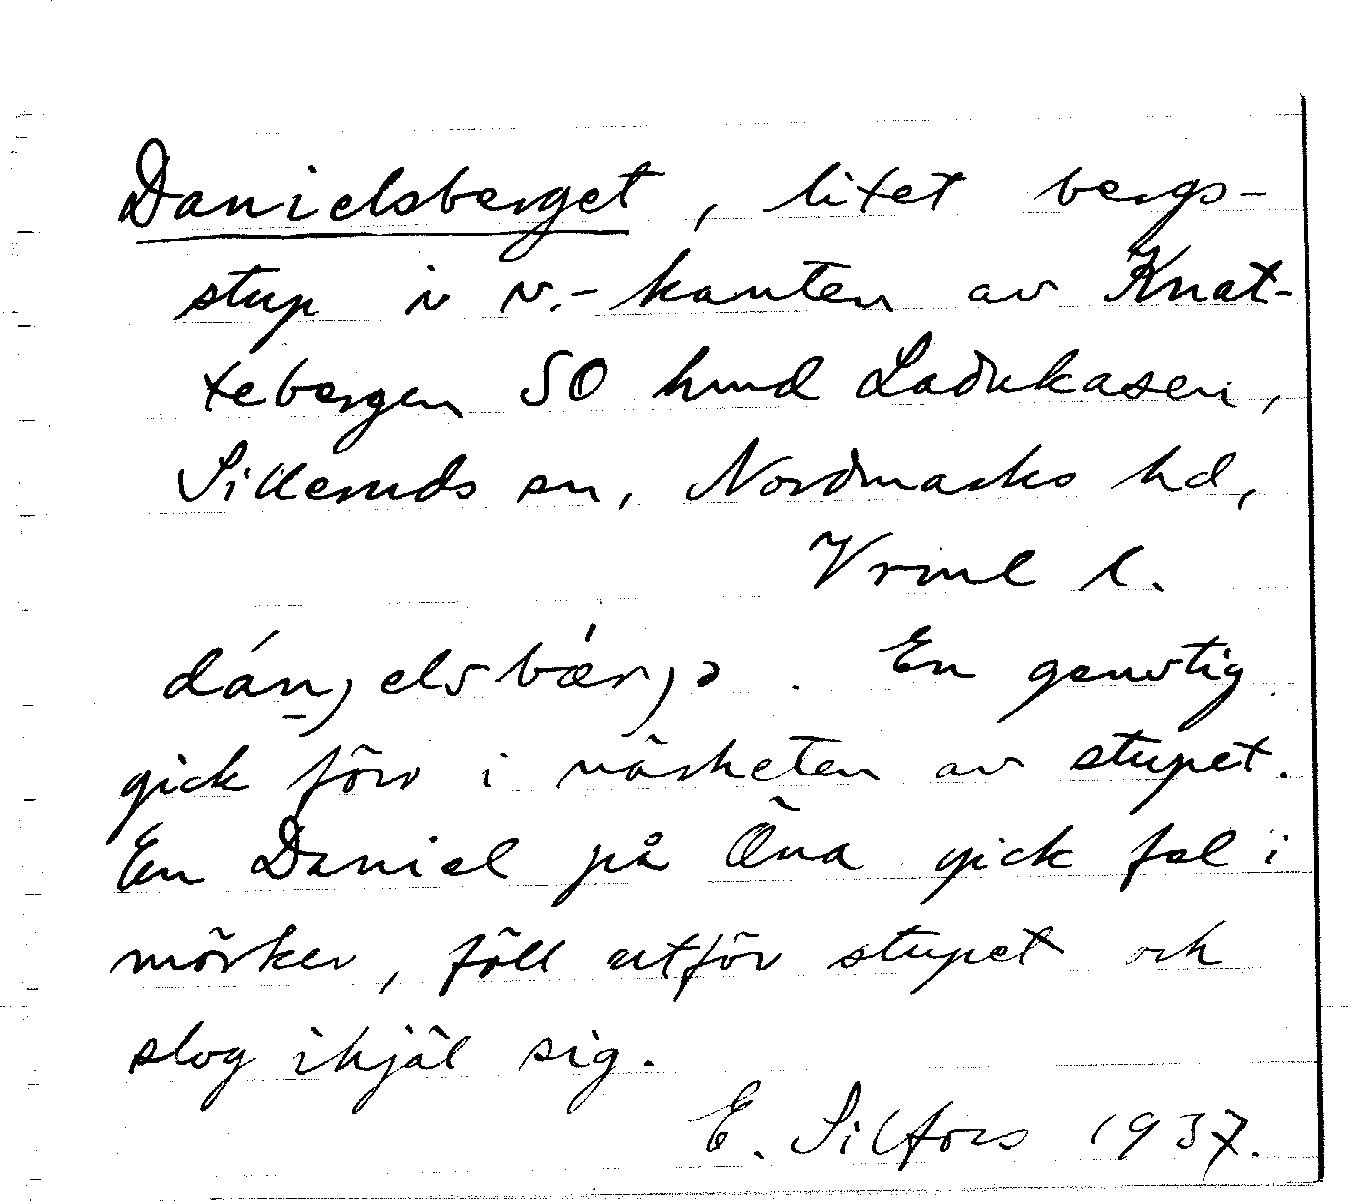 Danielsberget, litet bergs-
stup i v.-kanten av Knat-
tebergen SO hmd Ladukasen,
Silleruds sn, Nordmarks hd,
Vrml l.
En genstig
gick förr i närheten av stupet.
En Daniel på Öna gick fel i
mörker, föll utför stupet och
slog ihjäl sig.
E. Silfors 1937.